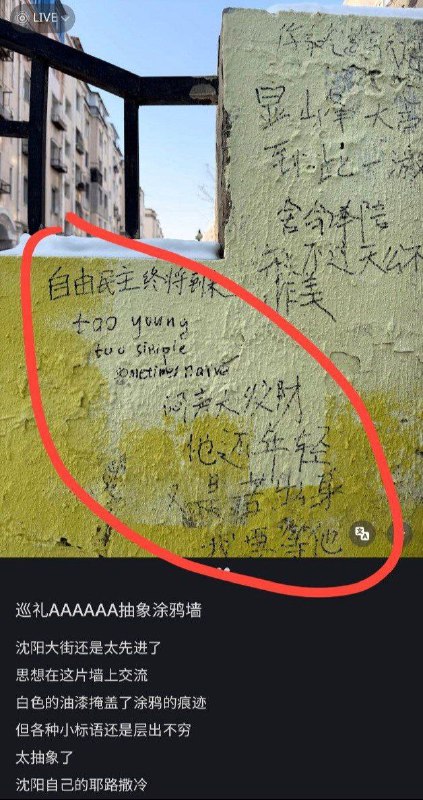 LIVE
显山
大
到此一
舍命陪
天公不
作美
自由民主终将到来
too young
too simple
sometimes naive
闷声大发财
他还年轻
又是苦出身
我要等他
巡礼AAAAAA抽象涂鸦墙
沈阳大街还是太先进了
思想在这片墙上交流
白色的油漆掩盖了涂鸦的痕迹
但各种小标语还是层出不穷
太抽象了
沈阳自己的耶路撒冷